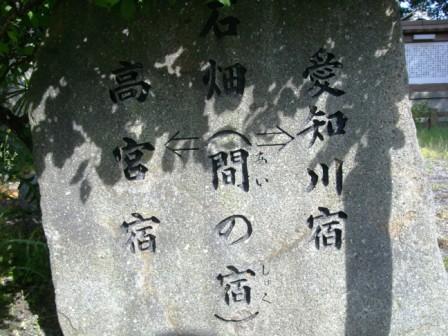 愛知川宿
石畑(間の宿)
あい
しゅく
⇐ ⇒
高宮宿